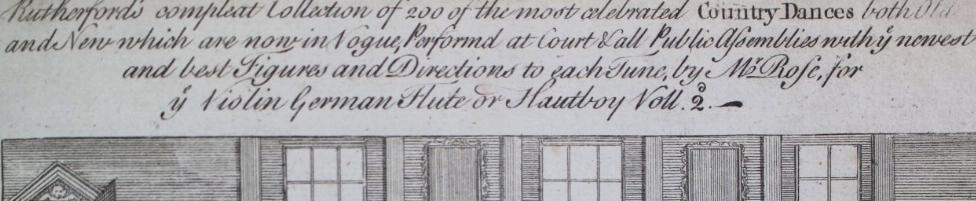 Rutherford's compleat Collection of 200 of the most celebrated Country Dances both Old
and New which are now in Vogue, Performd at Court & all Public Aſsemblies with yͤ newest
and best Figures and Directions to each Tune, by Mʳ Roſe, for
yͤ Violin German Flute or Hautboy Voll. 2.ᵈ